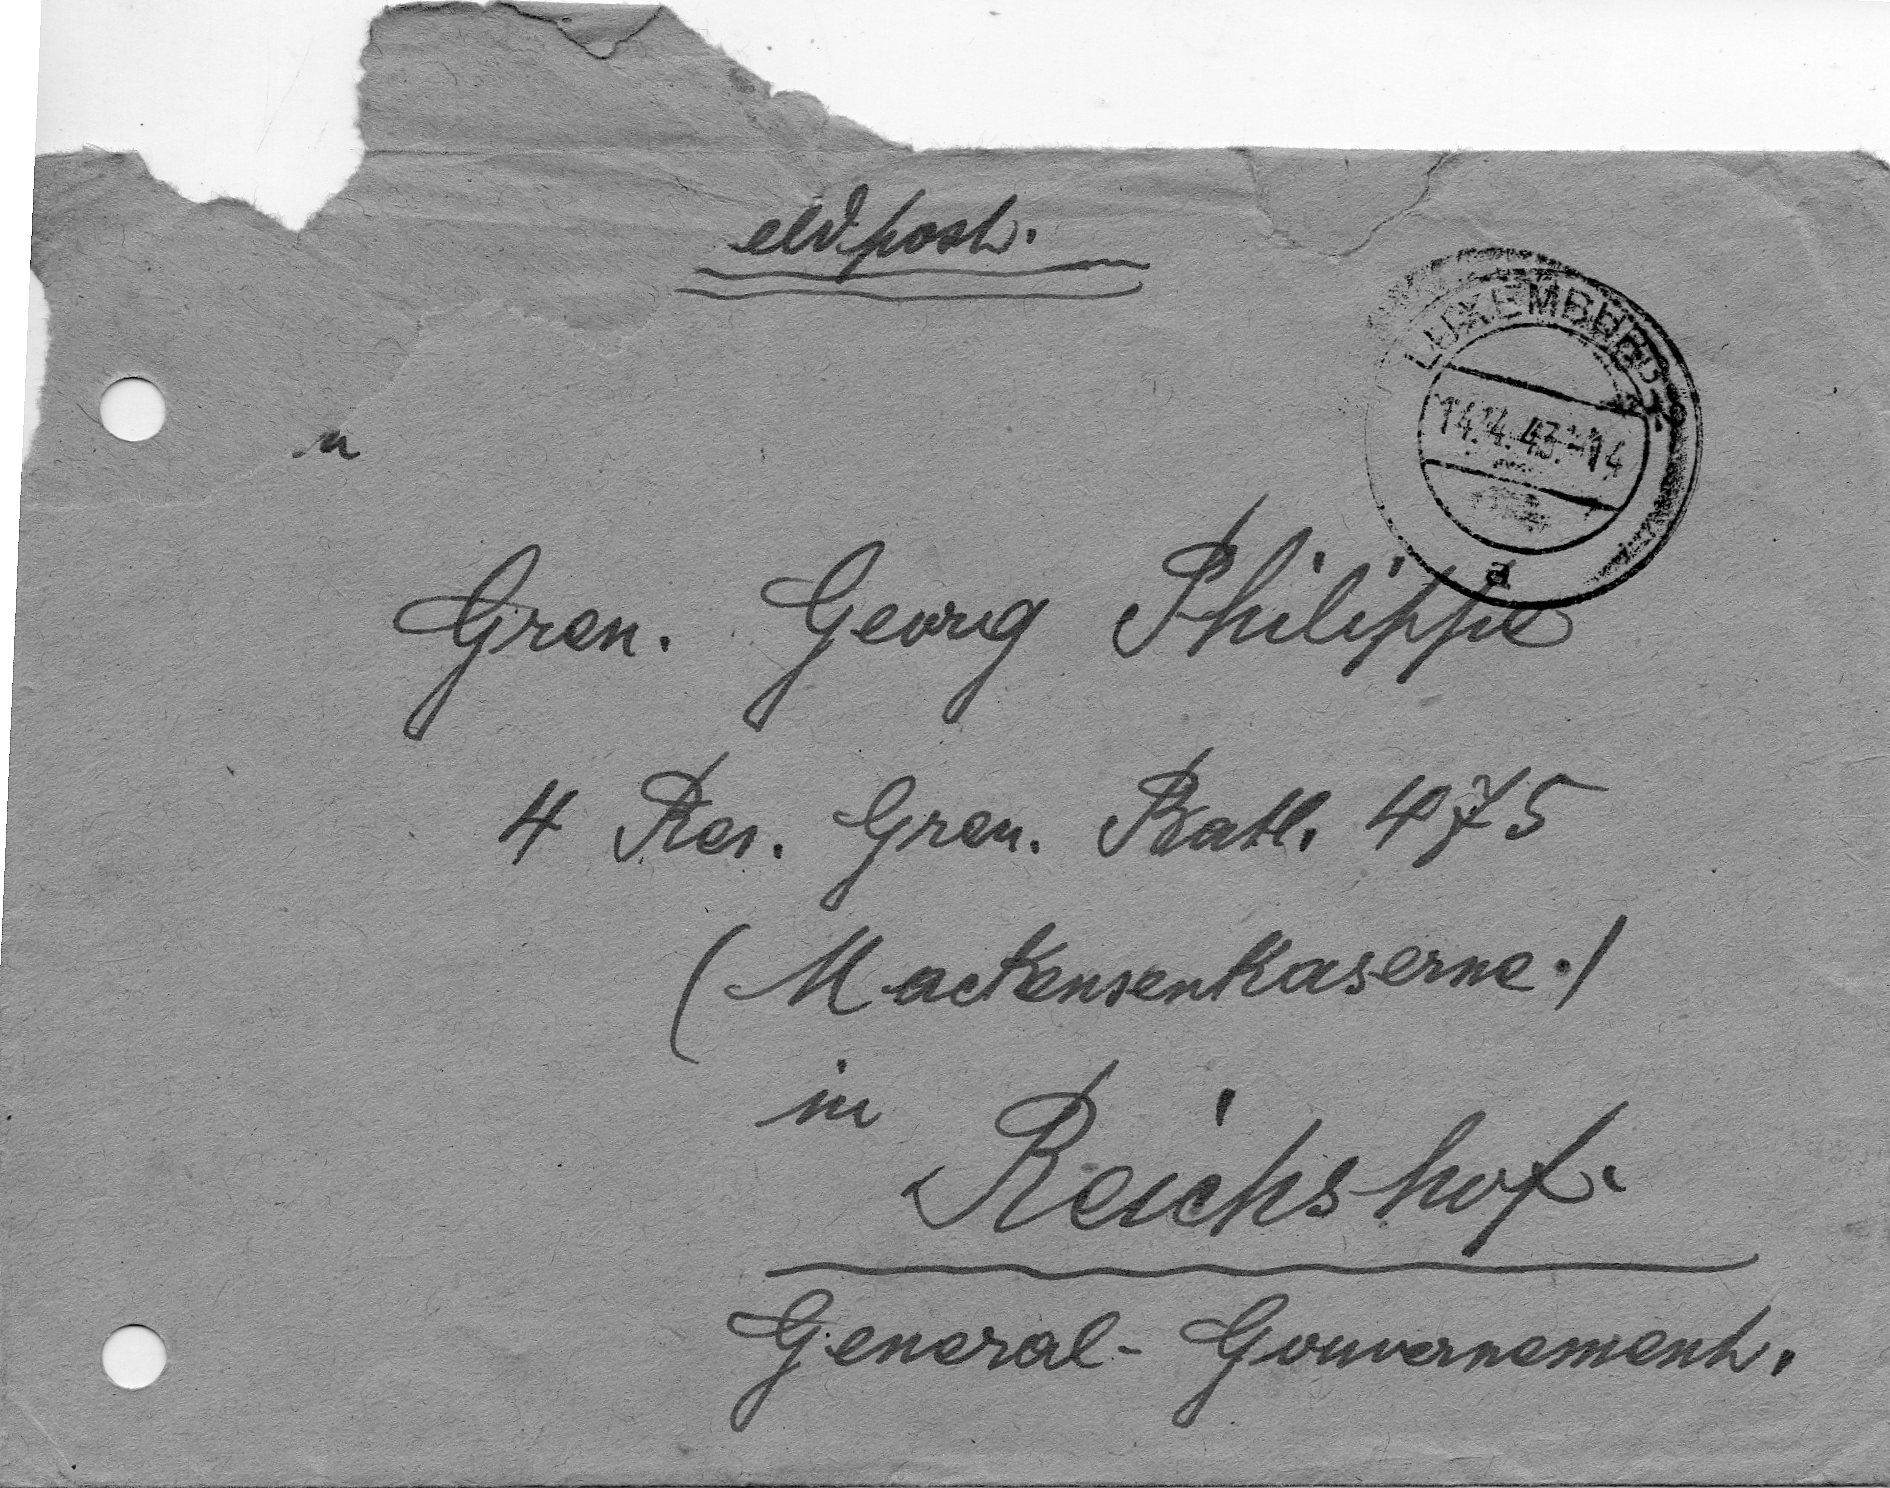 eldpost.
LUXEMBURG
14.4.43.-14
a
n
Gren. Georg Philippe
4 Res. Gren. Batl. 475
(Mackensenkaserne.)
in
Reichshof.
General-Gouvernement.